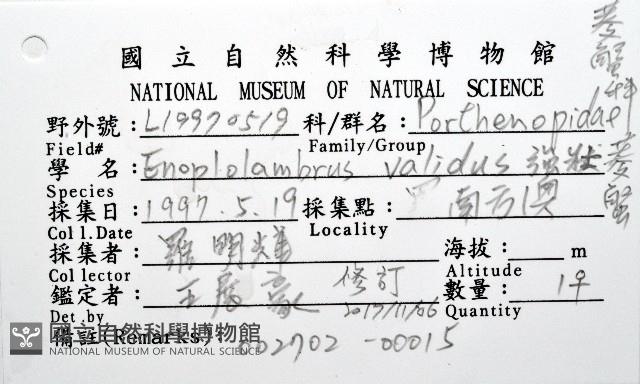 國立自然科學博物館
NATIONAL MUSEUM OF NATURAL SCIENCE
野外號:L19970519 科/群名:Porthenopidae 菱蟹科
Field# Family/Group
學 名:Enoplolambrus validus 強壯菱蟹
Species
採集日:1997.5.19 採集點: 南方澳
Coll.Date Locality
採集者:羅明輝 海拔: m
Collector Altitude
鑑定者:王展豪 修訂 2017/11/06 數量:1♀
Det.by Quantity
備註(Remarks): 002702-00015
國立自然科學博物館
NATIONAL MUSEUM OF NATURAL SCIENCE